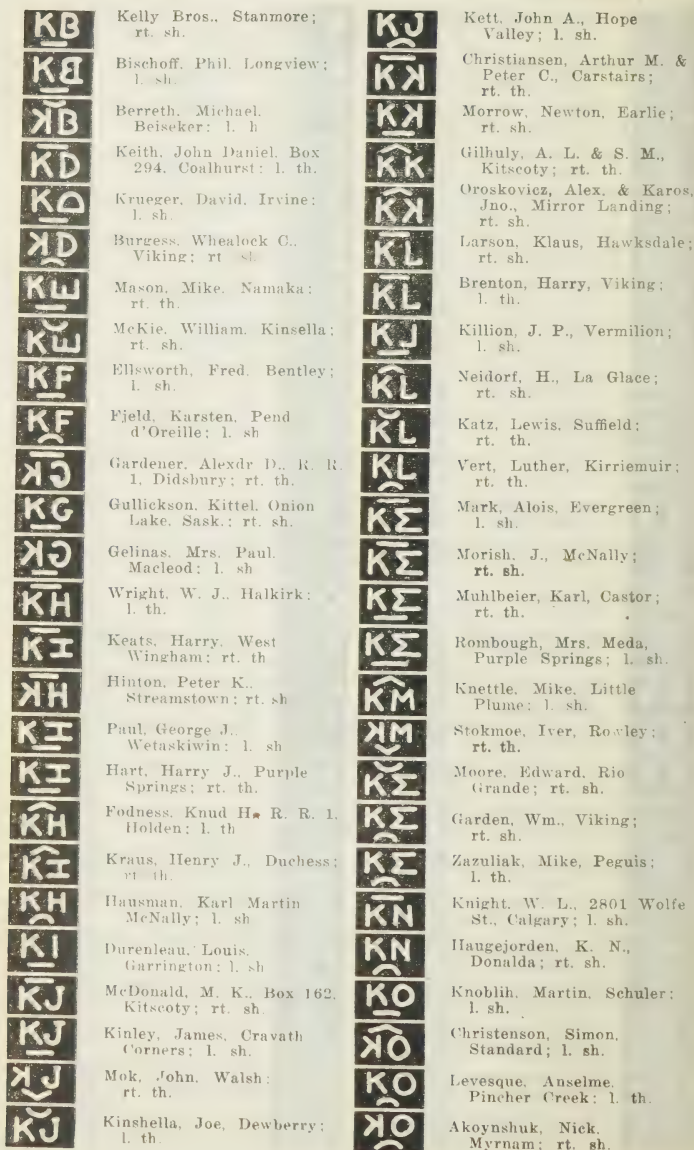 KB
Kelly Bros., Stanmore;
rt. sh.
KB
Bischoff, Phil. Longview;
l. sh.
KB
Berreth, Michael,
Beiseker; l. h
KD
Keith, John Daniel, Box
294, Coalhurst; l. th.
KD
Krueger, David, Irvine;
l. sh.
KD
Burgess, Whealock C.,
Viking; rt
KE
Mason, Mike, Namaka;
rt. th.
KE
McKie, William, Kinsella;
rt. sh.
KF
Ellsworth, Fred, Bentley;
l. sh.
KF
Fjeld, Karsten, Pend
d'Oreille; l. sh
KG
Gardener, Alexdr D., R. R.
1, Didsbury; rt. th.
KG
Gullickson, Kittel, Onion
Lake, Sask.; rt. sh.
KG
Gelinas, Mrs. Paul,
Macleod; l. sh
KH
Wright, W. J., Halkirk;
l. th.
KH
Keats, Harry, West
Wingham; rt. th
KH
Hinton, Peter K.,
Streamstown; rt. sh
KH
Paul, George J.,
Wetaskiwin; l. sh
KH
Hart, Harry J., Purple
Springs; rt. th.
KH
Fodness, Knud H. R. R. 1,
Holden; l. th
KH
Kraus, Henry J., Duchess;
rt. th.
KH
Hausman, Karl Martin
McNally; l. sh
KI
Durenleau, Louis,
Garrington; l. sh
KJ
McDonald, M. K., Box 162,
Kitscoty; rt. sh.
KJ
Kinley, James, Cravath
Corners; l. sh.
KJ
Mok, John, Walsh;
rt. th.
KJ
Kinshella, Joe, Dewberry;
l. th.
KJ
Kett, John A., Hope
Valley; l. sh.
KK
Christiansen, Arthur M. &
Peter C., Carstairs;
rt. th.
KK
Morrow, Newton, Earlie;
rt. sh.
KK
Gilhuly, A. L. & S. M.,
Kitscoty; rt. th.
KK
Oroskovicz, Alex, & Karos,
Jno., Mirror Landing;
rt. sh.
KL
Larson, Klaus, Hawksdale;
rt. sh.
KL
Brenton, Harry, Viking;
l. th.
KJ
Killion, J. P., Vermilion;
l. sh.
KL
Neidorf, H., La Glace;
rt. sh.
KL
Katz, Lewis, Suffield;
rt. th.
KL
Vert, Luther, Kirriemuir;
rt. th.
KM
Mark, Alois, Evergreen;
l. sh.
KM
Morish, J., McNally;
rt. sh.
KM
Muhlbeier, Karl, Castor;
rt. th.
KM
Rombough, Mrs. Meda,
Purple Springs; l. sh.
KM
Knettle, Mike, Little
Plume; l. sh.
KM
Stokmoe, Iver, Rowley;
rt. th.
KM
Moore, Edward, Rio
Grande; rt. sh.
KM
Garden, Wm., Viking;
rt. sh.
KM
Zazuliak, Mike, Peguis;
l. th.
KN
Knight, W. L., 2801 Wolfe
St., Calgary; l. sh.
KN
Haugejorden, K. N.,
Donalda; rt. sh.
KO
Knoblih, Martin, Schuler;
l. sh.
KO
Christenson, Simon,
Standard; l. sh.
KO
Levesque, Anselme,
Pincher Creek; l. th.
KO
Akoynshuk, Nick,
Myrnam; rt. sh.